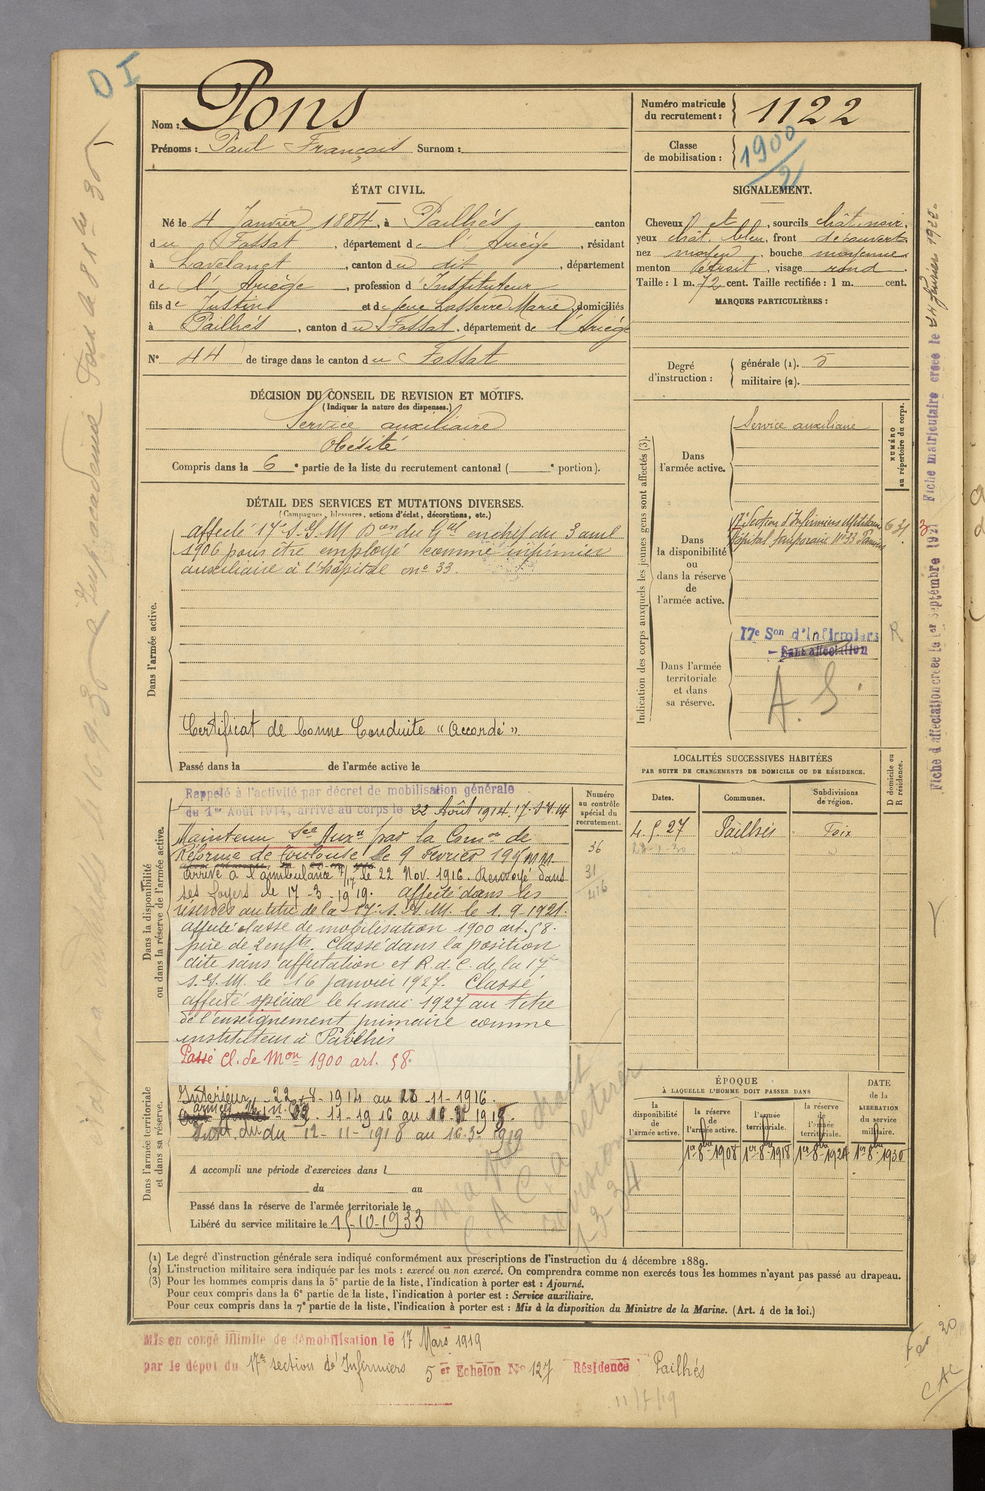 DI
Nom : Pons
Prénoms : Paul François Surnom :
Numéro matricule du recrutement : 1122
Classe de mobilisation : 1900/2
ÉTAT CIVIL.
Né le 4 Janvier 1884, à Pailhés canton
du Fossat, département de l'Ariège, résidant
à Lavelanet, canton du dit, département
de l'Ariège, profession d'Instituteur
fils de Justin et de feue Lasserre Marie, domiciliés
à Pailhés, canton du Fossat, département de l'Ariège
N° 44 de tirage dans le canton du Fossat
SIGNALEMENT.
Cheveux , sourcils chât. noir,
yeux chât. bleu, front découvert
nez moyen, bouche moyenne
menton étroit, visage rond.
Taille : 1 m. 72 cent. Taille rectifiée : 1 m. cent.
MARQUES PARTICULIÈRES :
Degré d'instruction : générale (1). 5
militaire (2).
DÉCISION DU CONSEIL DE REVISION ET MOTIFS.
(Indiquer la nature des dispenses.)
Service auxiliaire
Obésité
Compris dans la 6e partie de la liste du recrutement cantonal ( e portion).
DÉTAIL DES SERVICES ET MUTATIONS DIVERSES.
(Campagnes, blessures, actions d'éclat, décorations, etc.)
Dans l'armée active.
affecté 17e S.I.M Don du Gal en chef du 3 avril
1906 pour être employé comme infirmier
auxiliaire à l'hôpital no 33.
Certificat de bonne Conduite "Accordé".
Passé dans la de l'armée active le
Indication des corps auxquels les jeunes gens sont affectés (3).
NUMÉRO au répertoire du corps.
Dans l'armée active.
Service auxiliaire
Dans la disponibilité ou dans la réserve de l'armée active.
17e Section d'Infirmiers Militaires
Hôpital temporaire No 33 Pamiers
Dans l'armée territoriale et dans sa réserve.
17e Son d'Infirmiers R
- Sans affectation
A. S.
LOCALITÉS SUCCESSIVES HABITÉES
PAR SUITE DE CHANGEMENTS DE DOMICILE OU DE RÉSIDENCE.
Dates. Communes. Subdivisions de région. D domicile ou R résidence.
4.5.27 Pailhés Foix
Dans la disponibilité ou dans la réserve de l'armée active.
Numéro au contrôle spécial du recrutement.
36
31
416
Rappelé à l'activité par décret de mobilisation générale
du 1er Août 1914, arrivé au corps le 22 Août 1914.
Maintenu Sce Auxre par la Comon de
Réforme de Toulouse le 9 Février 1915
Arrivé à l'ambulance 7/17 le 22 Nov. 1916. Renvoyé dans
ses foyers le 17-3-1919. affecté dans les
réserves au titre de la 17e S.I.M. le 1.9.1921.
affecté classe de mobilisation 1900 art. 58.
père de 2 enfts. Classé dans la position
dite sans affectation et R.d.C. de la 17e
S.I.M. le 16 janvier 1927. Classé
affecté spécial le 4 mai 1927 au titre
de l'enseignement primaire comme
instituteur à Pailhés
Passé Cl. de Mon 1900 art. 58.
Dans l'armée territoriale et dans sa réserve.
Intérieur 22-8-1914 au 21-11-1916.
22-11-1916 au
du 12-11-1918 au 16-3-1919
A accompli une période d'exercices dans l
du au
Passé dans la réserve de l'armée territoriale le
Libéré du service militaire le 15-10-1933
ÉPOQUE
À LAQUELLE L'HOMME DOIT PASSER DANS
la disponibilité de l'armée active. la réserve de l'armée active. l'armée territoriale. la réserve de l'armée territoriale.
DATE de la LIBÉRATION du service militaire.
1er 8bre 1908 1er 8bre 1918 1er 8bre 1924 1er 8bre 1930
(1) Le degré d'instruction générale sera indiqué conformément aux prescriptions de l'instruction du 4 décembre 1889.
(2) L'instruction militaire sera indiquée par les mots : exercé ou non exercé. On comprendra comme non exercés tous les hommes n'ayant pas passé au drapeau.
(3) Pour les hommes compris dans la 5e partie de la liste, l'indication à porter est : Ajourné.
Pour ceux compris dans la 6e partie de la liste, l'indication à porter est : Service auxiliaire.
Pour ceux compris dans la 7e partie de la liste, l'indication à porter est : Mis à la disposition du Ministre de la Marine. (Art. 4 de la loi.)
Mis en congé illimité de démobilisation le 17 Mars 1919
par le dépôt du 17e section d'Infirmiers 5er Echelon No 127 Résidence Pailhés
Fiche d'affectation créée le 1er Septembre 1921
Fiche matriculaire créée le 24 février 1926.